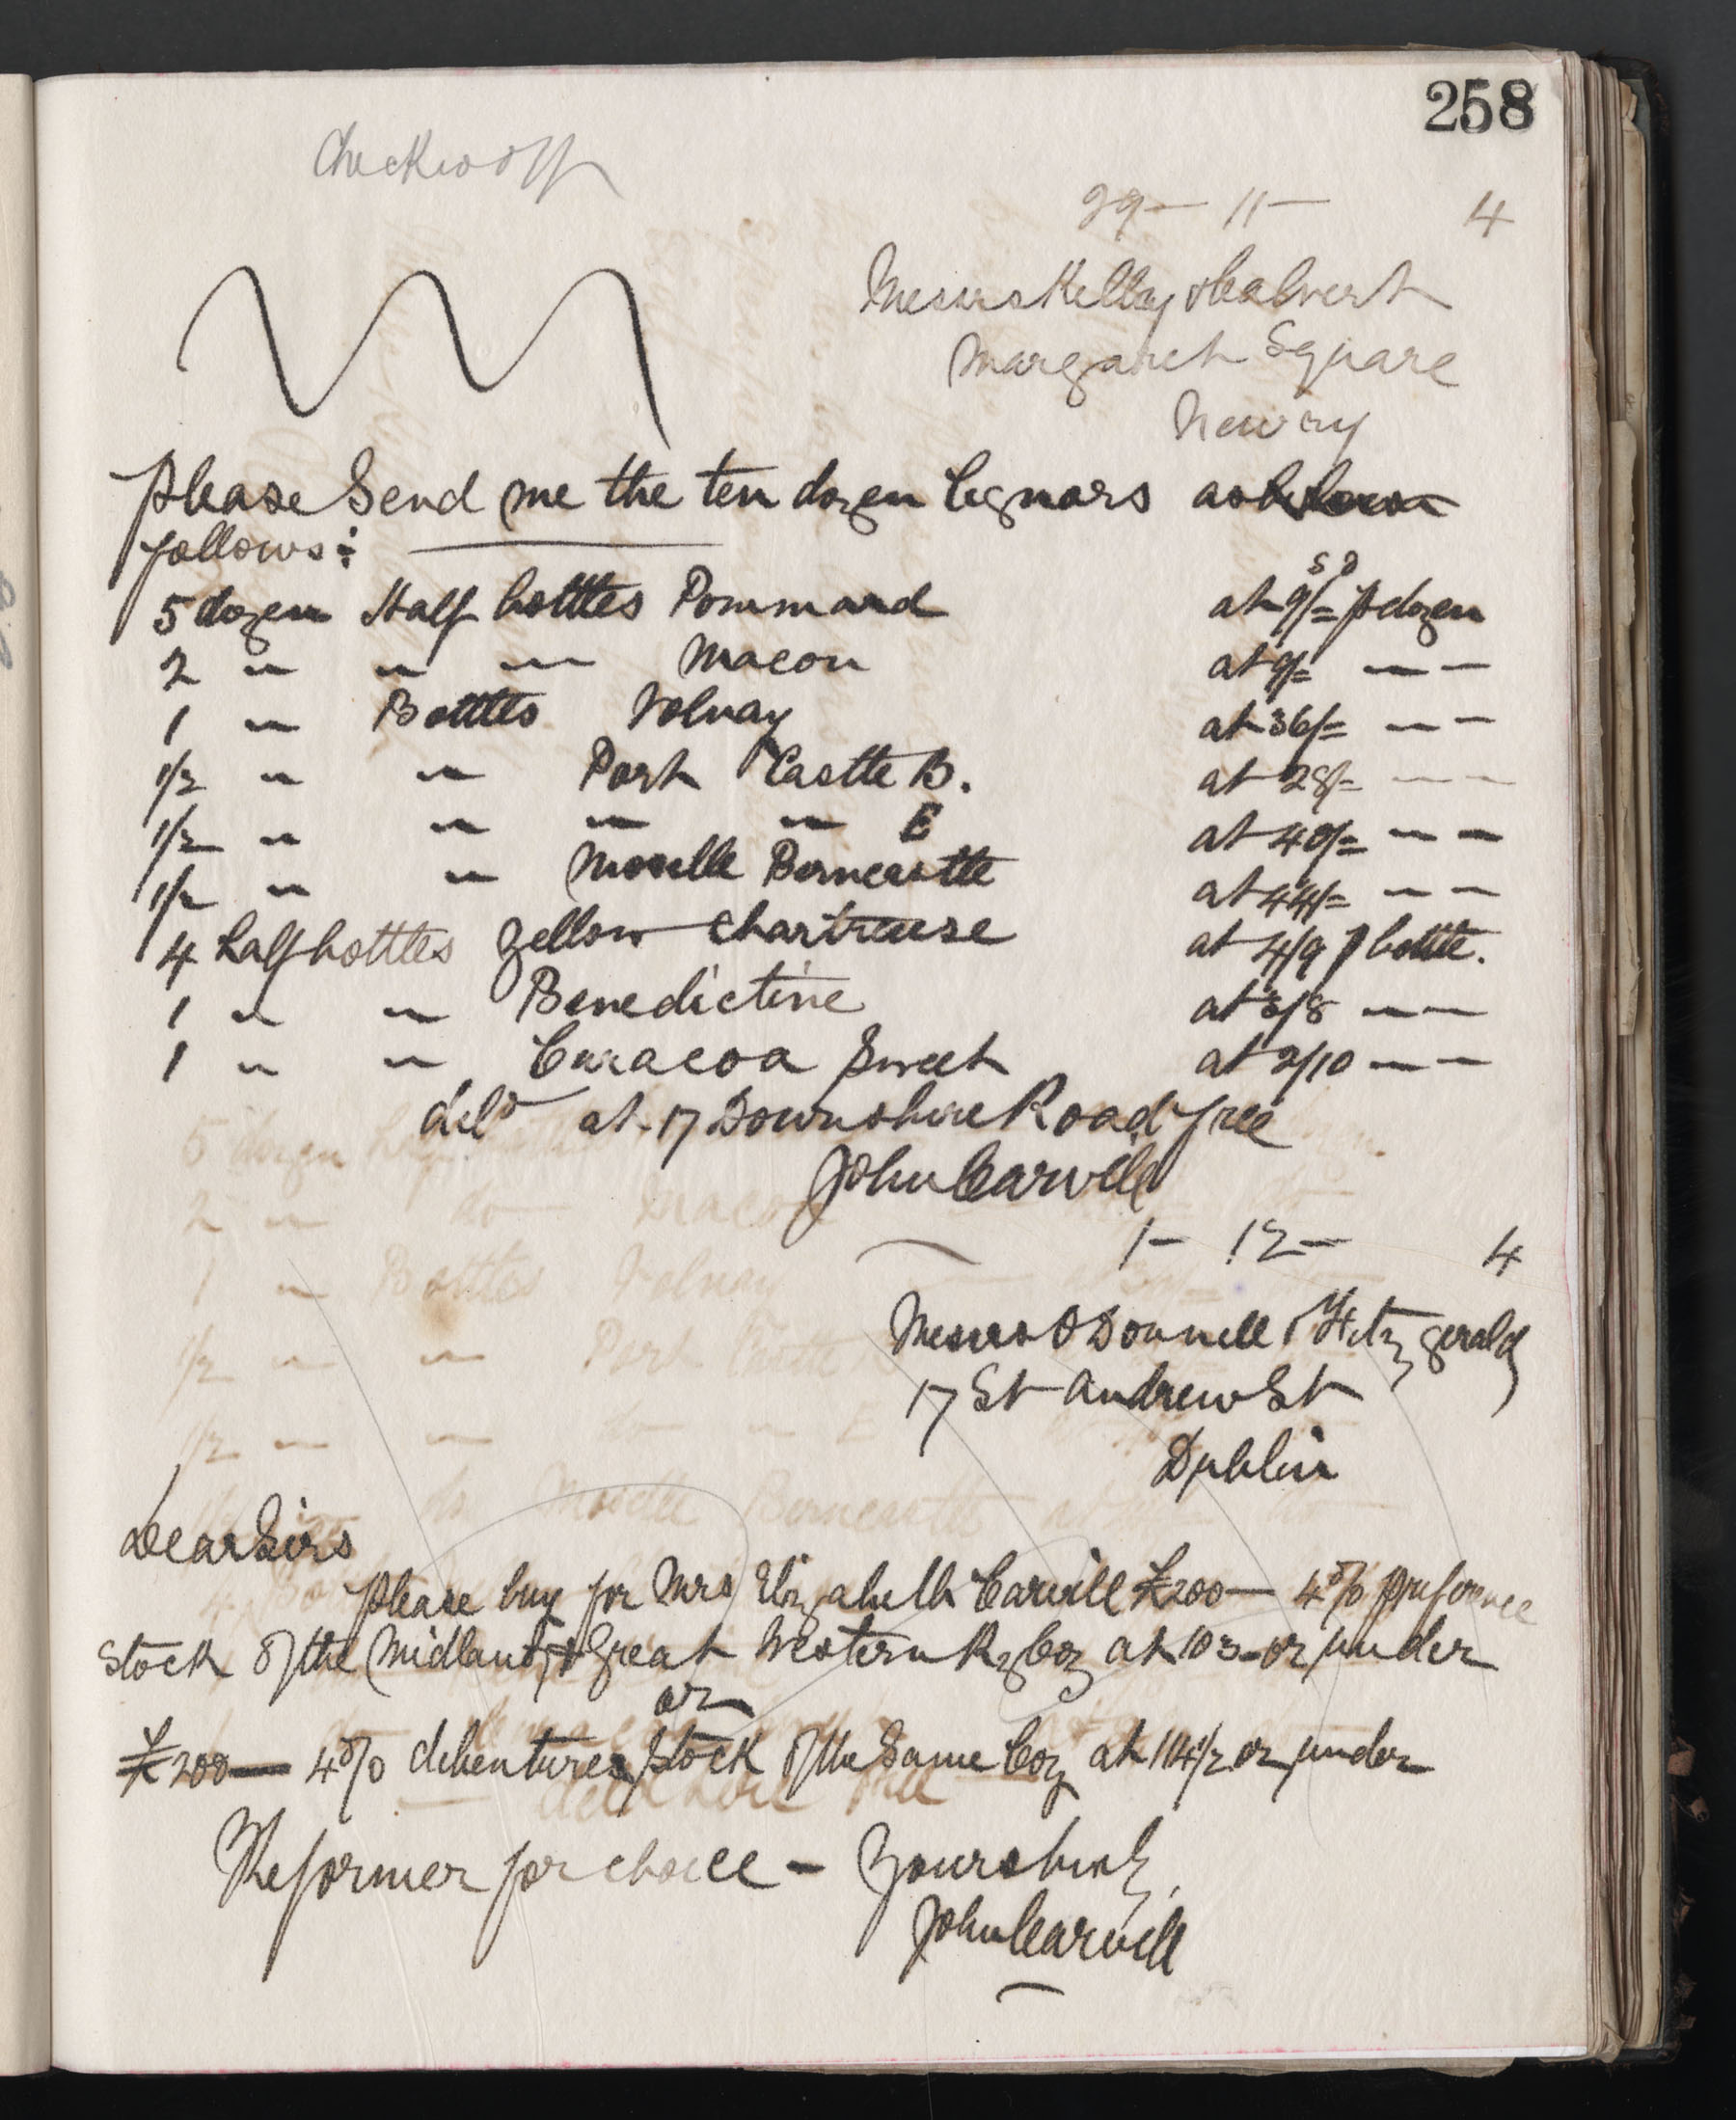 258
29 — 11 — 4
Messrs Kelly & Calvert
Margaret Square
Newry
Please Send me the ten dozen as below
follows:
s d
5 dozen Half bottles Pommard at 9/= p dozen
2 " " " Macon at 9/= " "
1 " Bottles Volnay at 36/= " "
1/2 " " Port Castle B. at 28/= " "
1/2 " " " " E at 40/= " "
1/2 " " Moselle Berncastle at 44/= " "
4 half bottles Yellow Chartreuse at 4/9 p bottle.
1 " " Benedictine at 3/8 " "
1 " " Curacoa Sweet at 2/10 " "
deld at 17 Downshire Road free
John Carvill
1 — 12 — 4
Messrs O Donnell & Fitzgerald
17 St Andrew St
Dublin
Dear Sirs
Please buy for Mrs Elizabeth Carvill £200 — 4% preference
Stock of the Midland & Great Western Ry Coy at 103 or under
or
£200 — 4% debentures Stock of the Same Coy at 114 1/2 or under
The former for choice — Yours truly
John Carvill